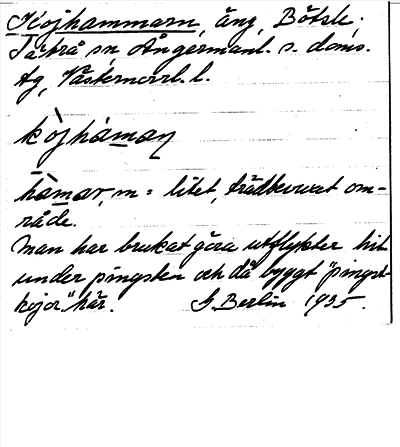 Kojhammarn, äng, Bötsle,
Tåsjö sn, Ångermanl. s. doms.
tg, Västernorrl. l.
kòjhámaṇ
hàmar, m = litet, trädbevuxet om-
råde.
Man har brukat göra utflykter hit
under pingsten och då byggt "pingst-
kojor" här. G. Berlin 1935.